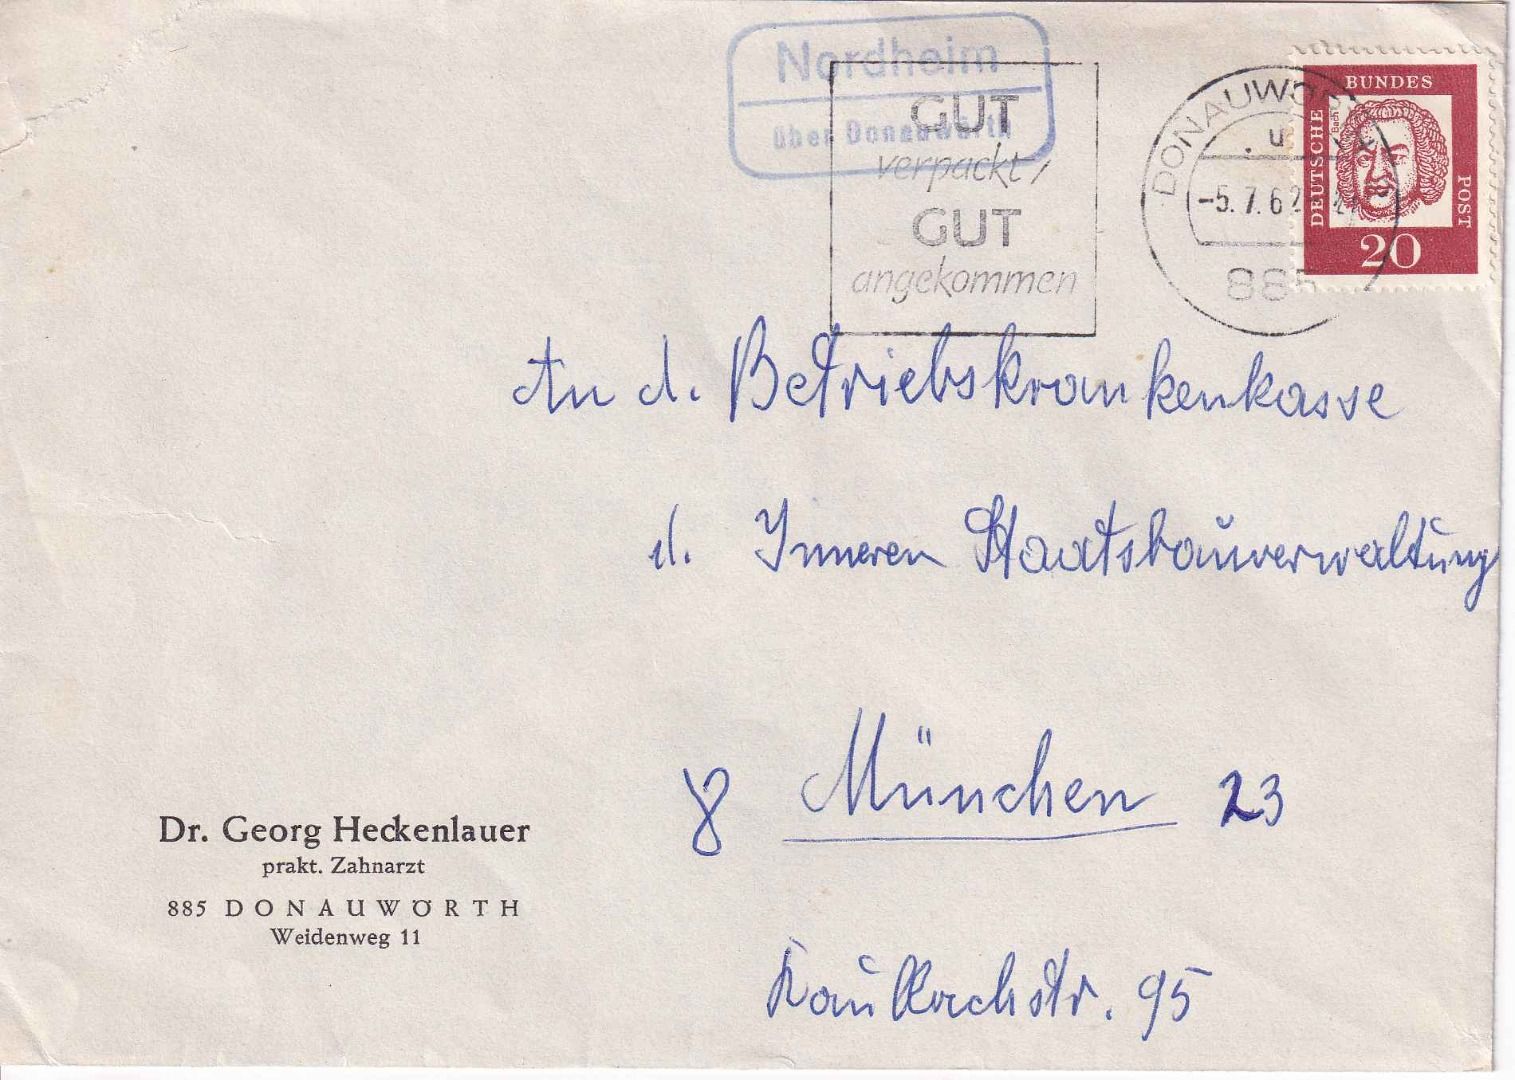 Nordheim
über Donauwörth
GUT
verpackt /
GUT
angekommen
DONAUWÖRTH
-5.7.62
885
DEUTSCHE BUNDES POST
Bach
20
An d. Betriebskrankenkasse
d. Inneren Staatsbauverwaltung
8 München 23
Kaulbachstr. 95
Dr. Georg Heckenlauer
prakt. Zahnarzt
885 DONAUWÖRTH
Weidenweg 11